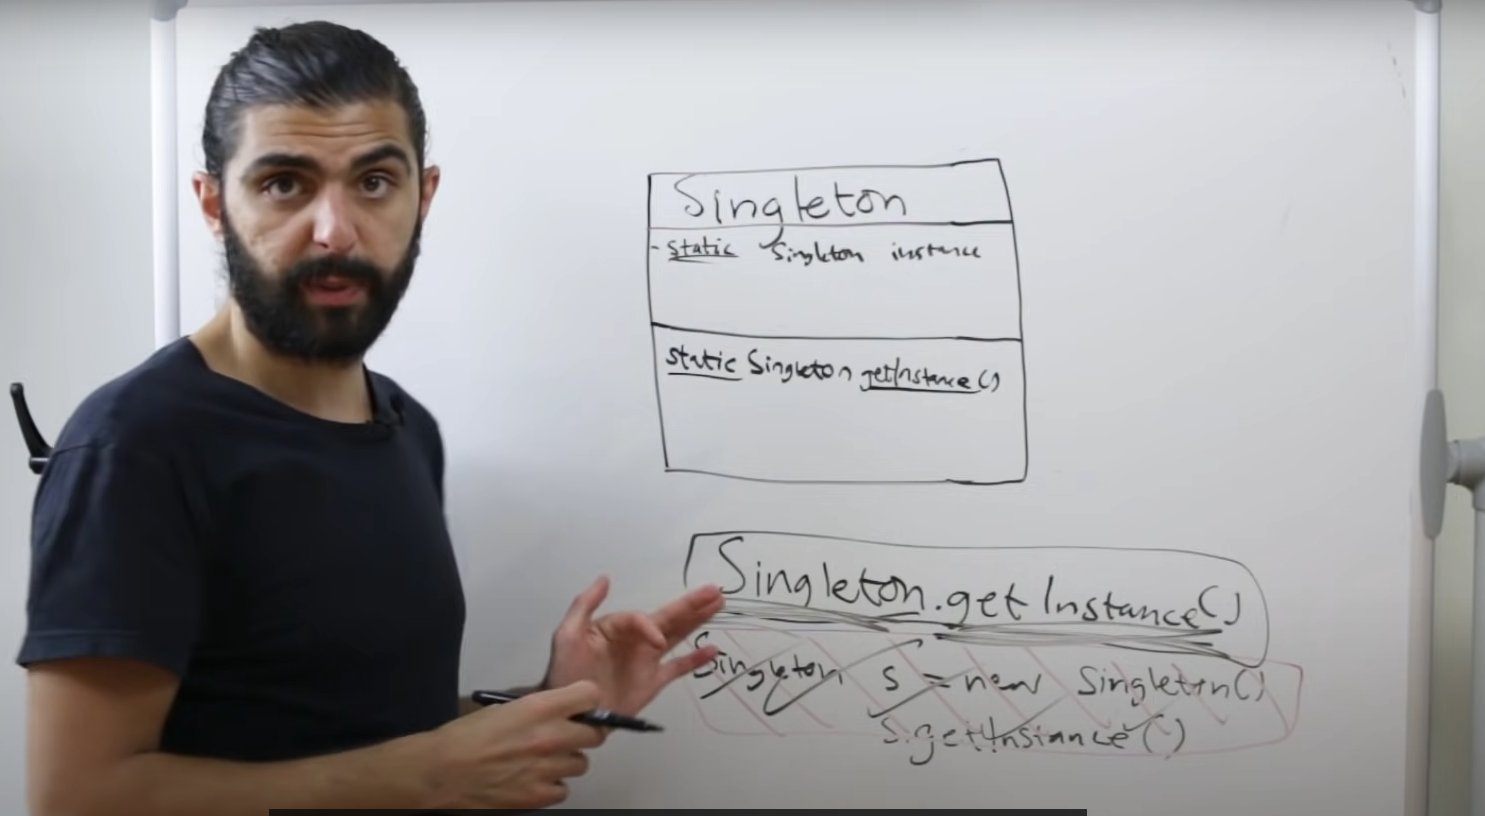 Singleton
- static Singleton instance
static Singleton getInstance()
Singleton.getInstance()
Singleton s = new Singleton()
s.getInstance()